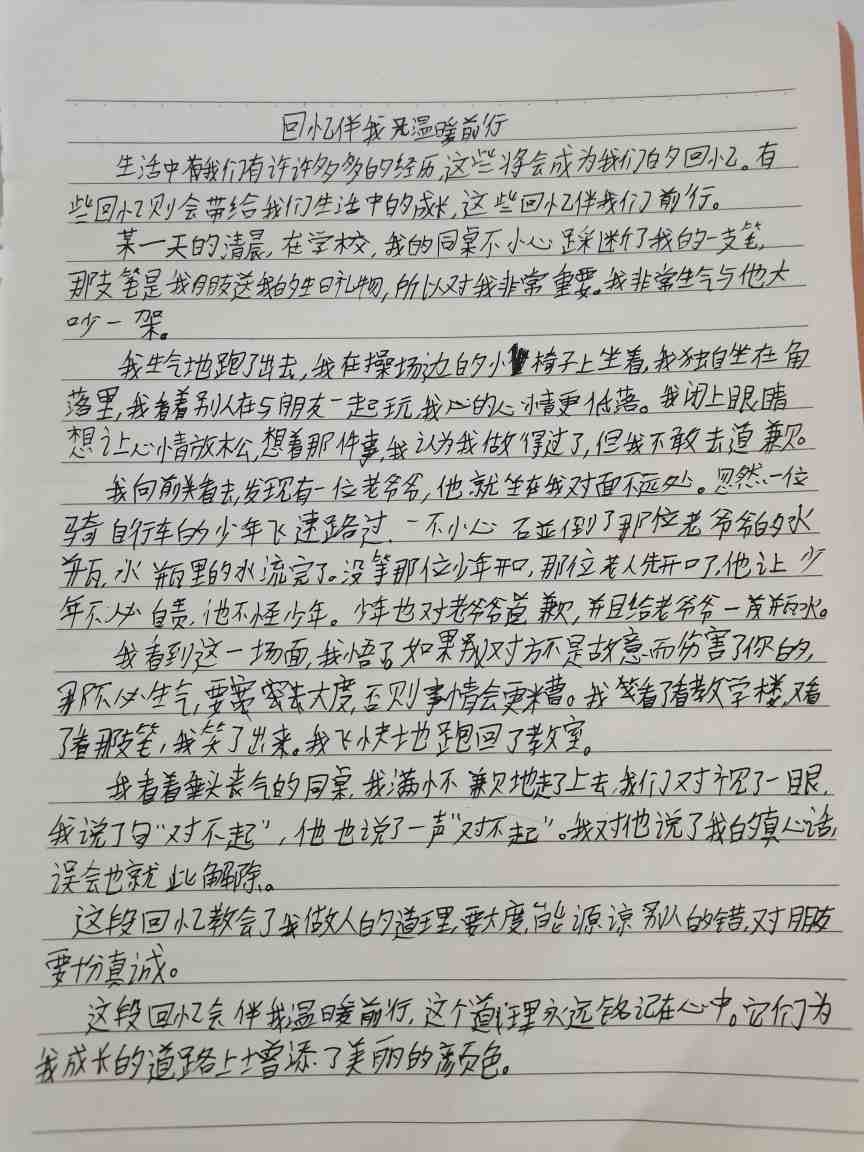 回忆伴我温暖前行
生活中有我们有许许多多的经历,这些将会成为我们的回忆。有
些回忆则会带给我们生活中的成长,这些回忆伴我们前行。
某一天的清晨,在学校,我的同桌不小心踩断了我的一支笔,
那支笔是我朋友送我的生日礼物,所以对我非常重要。我非常生气与他大
吵一架。
我生气地跑了出去,我在操场边的小椅子上坐着,我独自坐在角
落里,我看着别人在与朋友一起玩,我的心情更低落。我闭上眼睛
想让心情放松,想着那件事,我认为我做得过了,但我不敢去道歉。
我向前关看去,发现有一位老爷爷,他就坐在我对面不远处。忽然一位
骑自行车的少年飞速路过,一不小心碰倒了那位老爷爷的水
瓶,水瓶里的水流完了。没等那位少年开口,那位老人先开口了,他让少
年不必自责,他不怪少年。少年也对老爷爷道歉,并且给老爷爷一瓶水。
我看到这一场面,我悟了如果对方不是故意而伤害了你的,
那不必生气,要宽容大度,否则事情会更糟。我看了看教学楼,又看
了看那支笔,我笑了出来。我飞快地跑回了教室。
我看着垂头丧气的同桌,我满怀歉地走了上去,我们对视了一眼,
我说了句“对不起”,他也说了一声“对不起”。我对他说了我的真心话,
误会也就此解除。
这段回忆教会了我做人的道理,要大度,能源谅别人的错,对朋友
要十份真诚。
这段回忆会伴我温暖前行,这个道理永远铭记在心中。它们为
我成长的道路上增添了美丽的颜色。